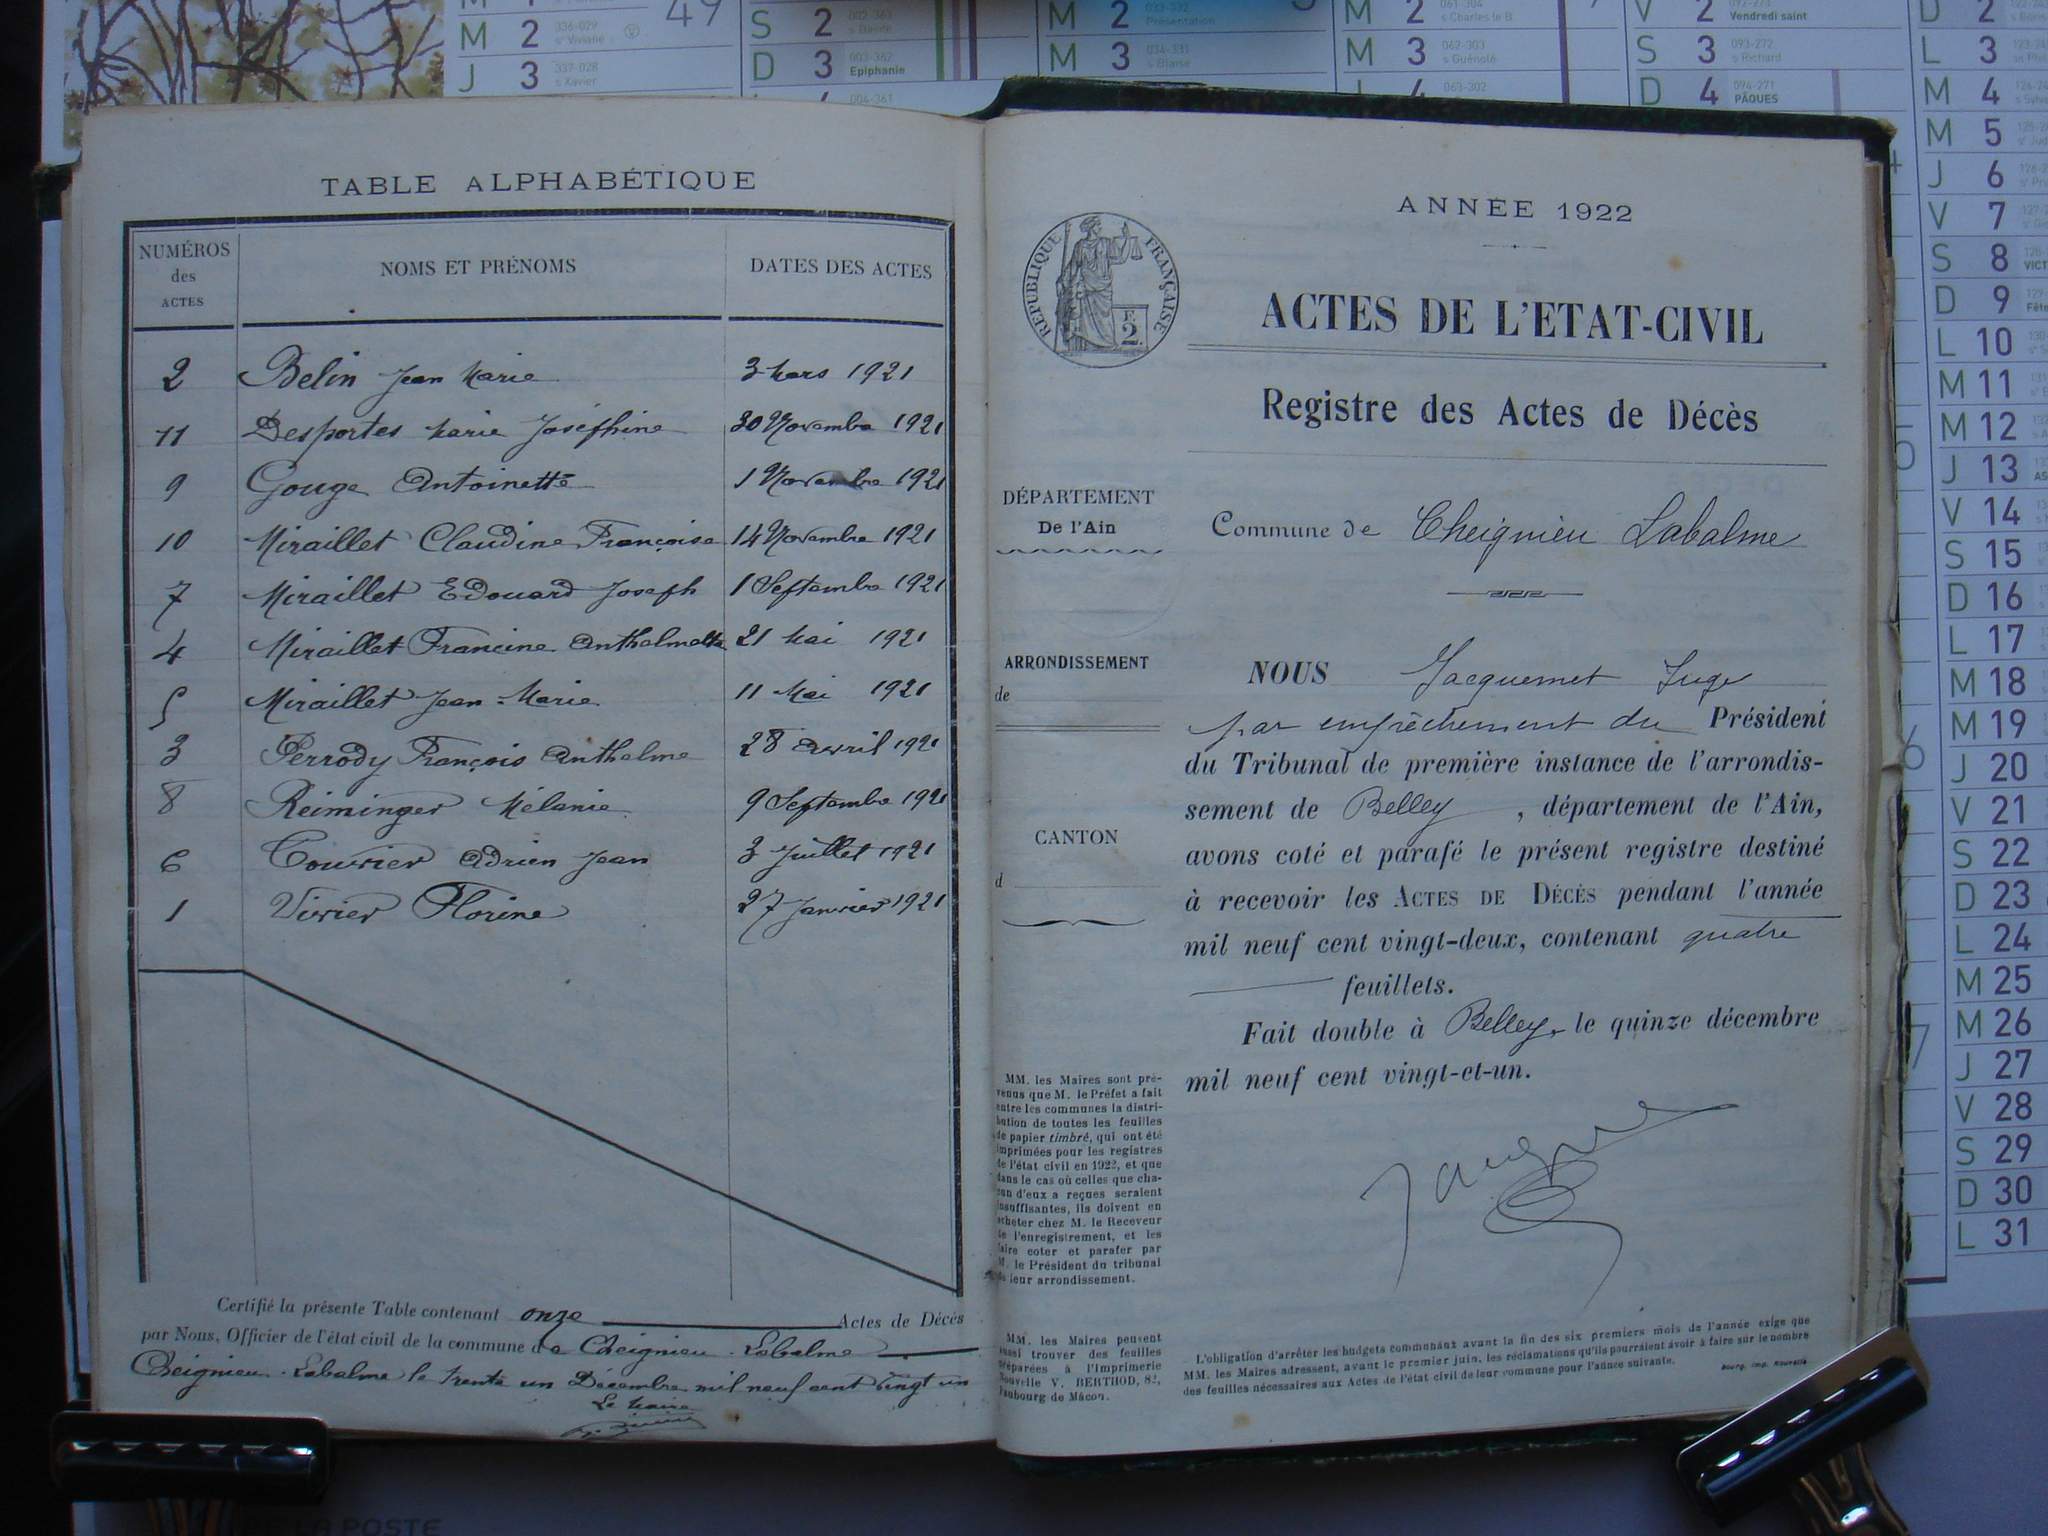 TABLE ALPHABÉTIQUE
NUMÉROS des ACTES NOMS ET PRÉNOMS DATES DES ACTES
2 Belin Jean Marie 3 Mars 1921
11 Desportes Marie Joséphine 30 Novembre 1921
9 Gouge Antoinette 1 Novembre 1921
10 Miraillet Claudine Françoise 14 Novembre 1921
7 Miraillet Edouard Joseph 1 Septembre 1921
4 Miraillet Francine Anthelmette 21 Mai 1921
5 Miraillet Jean-Marie 11 Mai 1921
3 Perrody François Anthelme 28 Avril 1921
8 Reiminger Mélanie 9 Septembre 1921
6 Tourrier Adrien Jean 3 Juillet 1921
1 Vivier Florine 27 Janvier 1921
Certifié la présente Table contenant onze Actes de Décès
par Nous, Officier de l'état civil de la commune de Cheignieu-Labalme
Cheignieu-Labalme le trente un Décembre mil neuf cent vingt un
Le Maire
ANNÉE 1922
RÉPUBLIQUE FRANÇAISE
2
ACTES DE L'ETAT-CIVIL
Registre des Actes de Décès
DÉPARTEMENT
De l'Ain
Commune de Cheignieu Labalme
ARRONDISSEMENT
de
CANTON
d
NOUS Jacquemet Juge
par empêchement du Président
du Tribunal de première instance de l'arrondis-
sement de Belley, département de l'Ain,
avons coté et parafé le présent registre destiné
à recevoir les ACTES DE DÉCÈS pendant l'année
mil neuf cent vingt-deux, contenant quatre
feuillets.
Fait double à Belley, le quinze décembre
mil neuf cent vingt-et-un.
MM. les Maires sont pré-
venus que M. le Préfet a fait
entre les communes la distri-
bution de toutes les feuilles
de papier timbré, qui ont été
imprimées pour les registres
de l'état civil en 1922, et que
dans le cas où celles que cha-
cun d'eux a reçues seraient
insuffisantes, ils doivent en
acheter chez M. le Receveur
de l'enregistrement, et les
faire coter et parafer par
M. le Président du tribunal
de leur arrondissement.
MM. les Maires peuvent
aussi trouver des feuilles
préparées à l'Imprimerie
Nouvelle V. BERTHOD, 82,
Faubourg de Mâcon.
L'obligation d'arrêter les budgets communaux avant la fin des six premiers mois de l'année exige que
MM. les Maires adressent, avant le premier juin, les réclamations qu'ils pourraient avoir à faire sur le nombre
des feuilles nécessaires aux Actes de l'état civil de leur commune pour l'année suivante.
Bourg, imp. Nouvelle
49
M 2 336-029 s Viviane
J 3 337-028 s Xavier
S 2 002-363 s Basile
D 3 003-362 Epiphanie
004-361
M 2 033-332 Présentation
M 3 034-331 s Blaise
M 2 061-304 s Charles le B
M 3 062-303 s Guénolé
J 4 063-302
V 2 092-273 Vendredi saint
S 3 093-272 s Richard
D 4 094-271 PÂQUES
D 2
L 3
M 4
M 5
J 6
V 7
S 8
D 9
L 10
M 11
M 12
J 13
V 14
S 15
D 16
L 17
M 18
M 19
J 20
V 21
S 22
D 23
L 24
M 25
M 26
J 27
V 28
S 29
D 30
L 31
LA POSTE